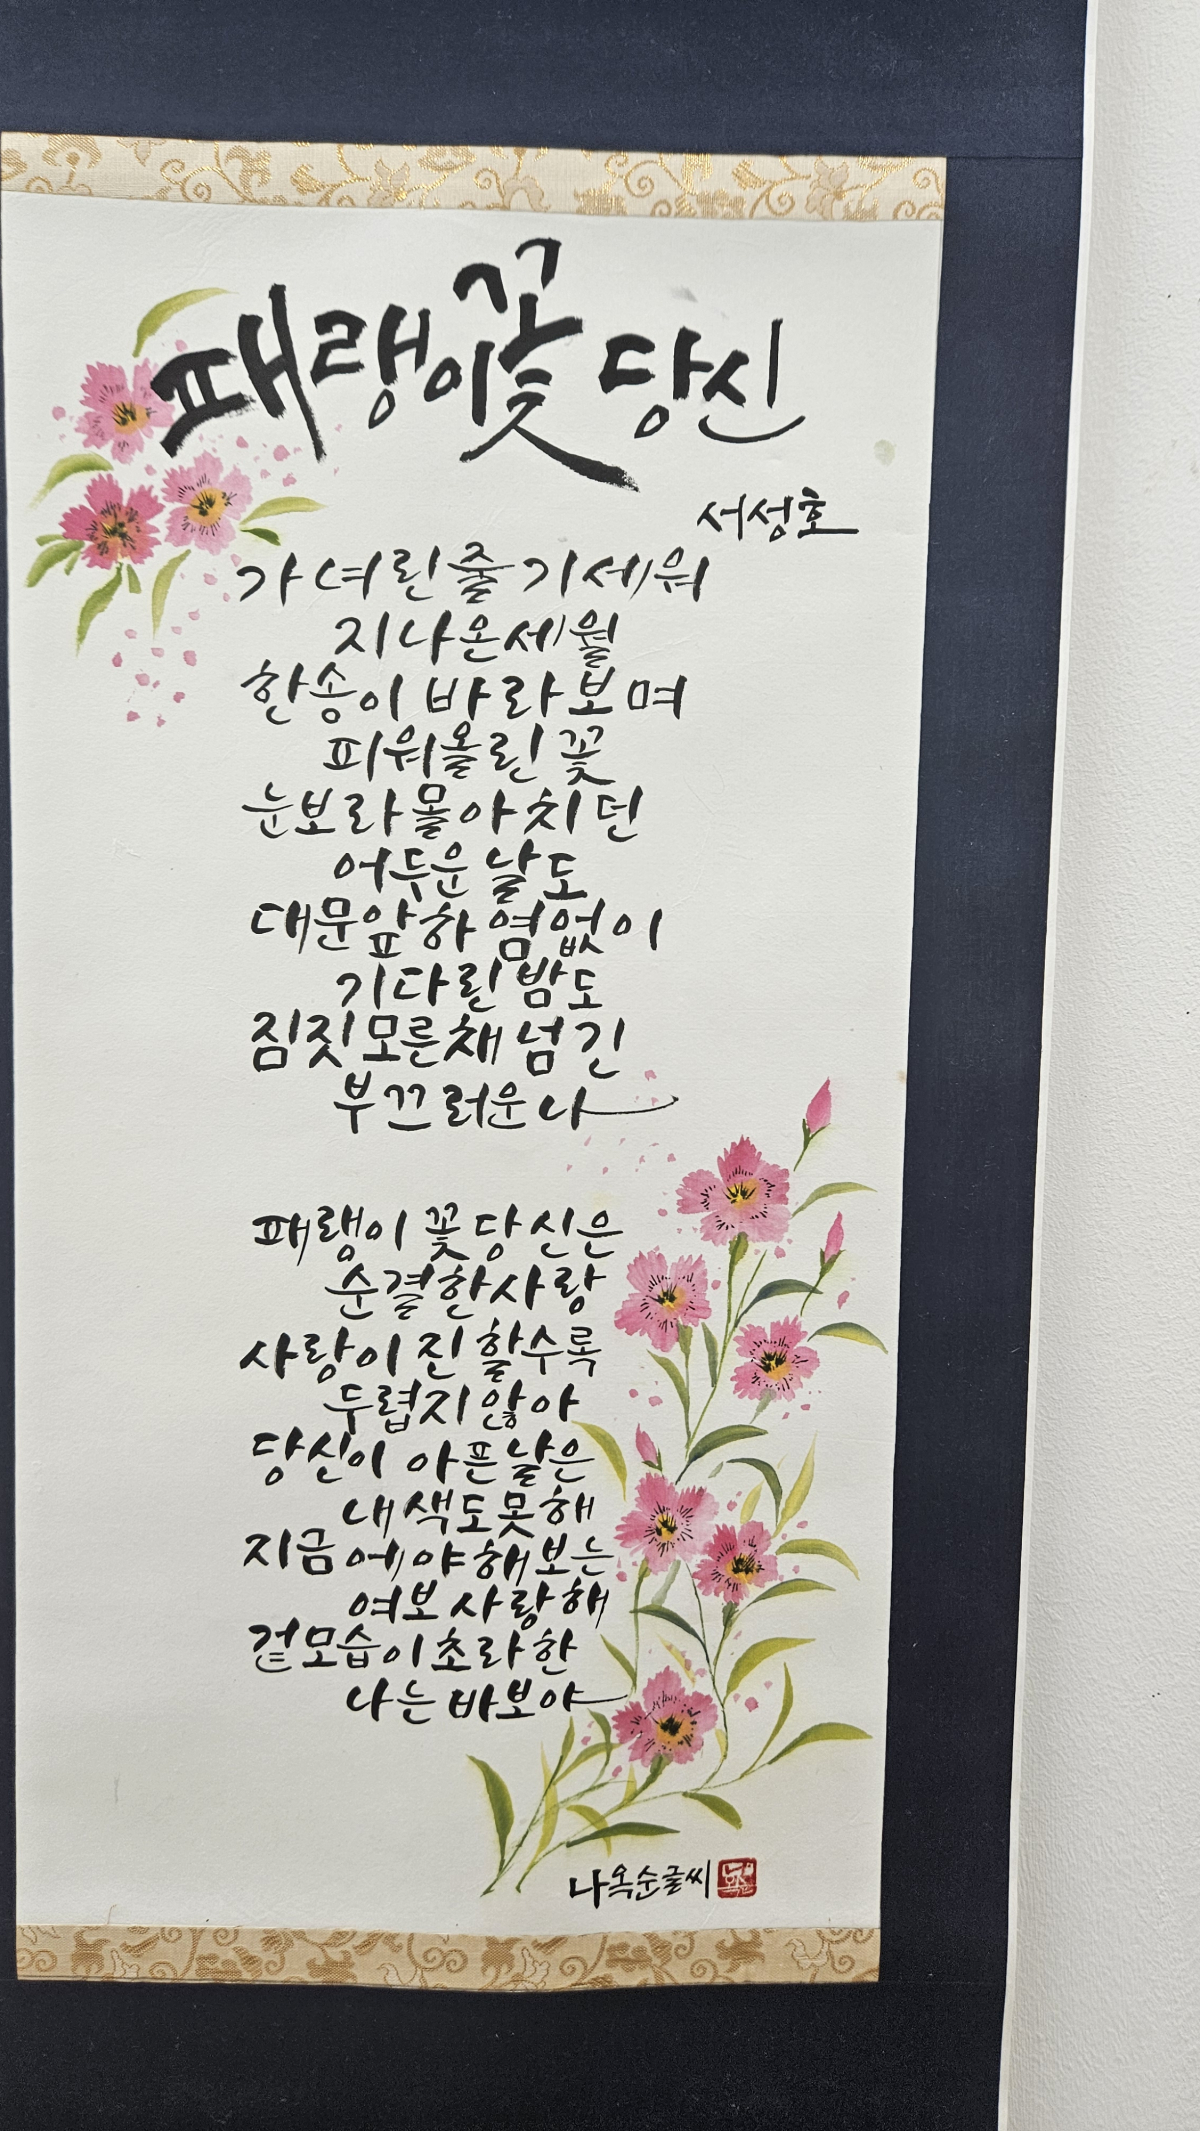 패랭이꽃 당신
서성호
가녀린 줄기 세워
지나온 세월
한송이 바라보며
피워올린 꽃
눈보라 몰아치던
어두운 날도
대문앞 하염없이
기다린 밤도
짐짓 모른채 넘긴
부끄러운 나
패랭이 꽃 당신은
순결한 사랑
사랑이 진할수록
두렵지 않아
당신이 아픈 날은
내색도 못해
지금에야 해보는
여보 사랑해
겉모습이 초라한
나는 바보야
나옥순글씨